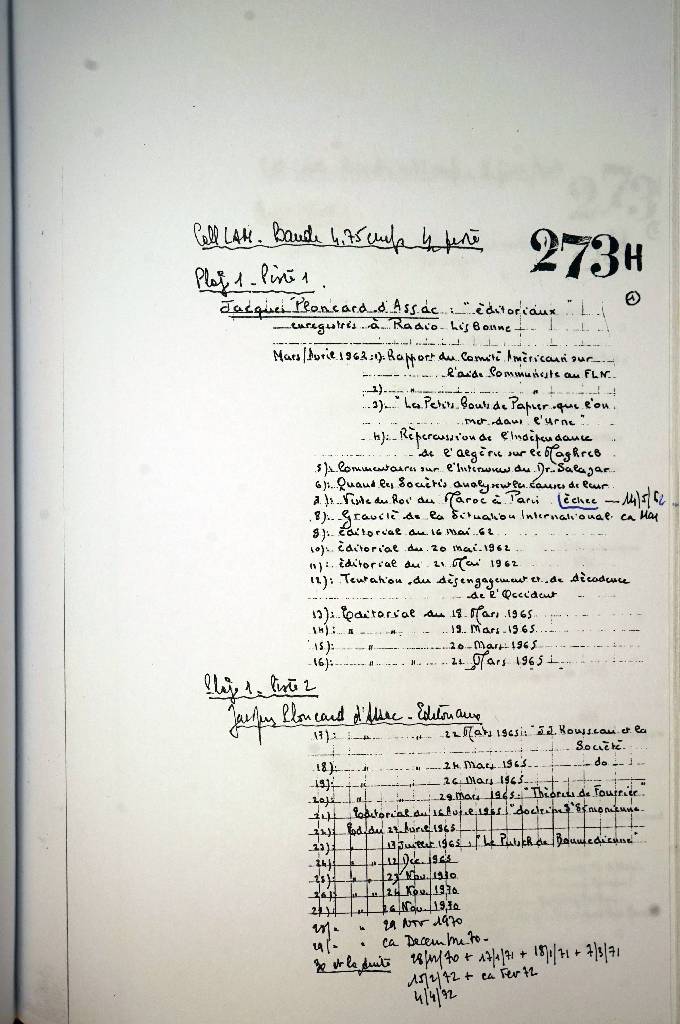 Coll LAM. Bande 4.75 cm/s 4 piste
273H
Plage 1 - Piste 1.
①
Jacques Ploncard d'Assac : "éditoriaux"
enregistrés à Radio-Lisbonne
Mars/Avril 1962: 1): Rapport du Comité Américain sur
l'aide Communiste au FLN.
2): " "
3): "Les Petits bouts de Papier que l'on
met dans l'Urne"
4): Répercussion de l'Indépendance
de l'Algérie sur le Maghreb
5): Commentaires sur l'Interview du Dr Salazar
6): Quand les Sociétés analysent les causes de leur
échec — 14/5/62
7): Visite du Roi du Maroc à Paris
8): Gravité de la Situation International ca Mai
9): éditorial du 16 mai 62
10): éditorial du 20 mai 1962
11): éditorial du 21 Mai 1962
12): Tentation du désengagement et de décadence
de l'Occident
13): Editorial du 18 Mars 1965
14): " " 19 Mars 1965
15): " 20 Mars 1965
16): " 21 Mars 1965
Plage 1 - Piste 2
Jacques Ploncard d'Assac - Editoriaux
17): " " 22 Mars 1965: "JJ Rousseau et la
Société.
18): " " 24 Mars 1965 - do -
19): " " 26 Mars 1965
20): " " 29 Mars 1965: "Théories de Fourrier"
21) Editorial du 16 Avril 1965 "doctrine
22): Ed. du 27 Avril 1965
23): " " 13 Juillet 1965: "Le Putsch de Boumedienne"
24): " " 12 Déc 1965
25): " " 23 Nov. 1970
26): " " 24 Nov. 1970
27): " " 26 Nov. 1970
28/- " 29 Nov 1970
29/- " ca Decembre 70-
30 et la suite 28/12/70 + 17/1/71 + 18/1/71 + 7/3/71
15/2/72 + ca Fev 72
4/4/92